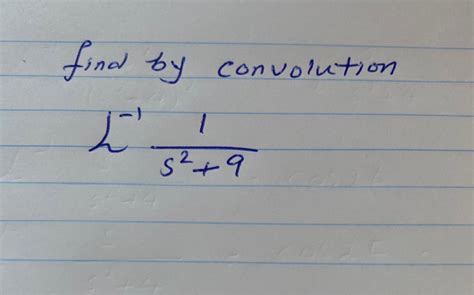 find by convolution
L⁻¹ 1/(s²+9)